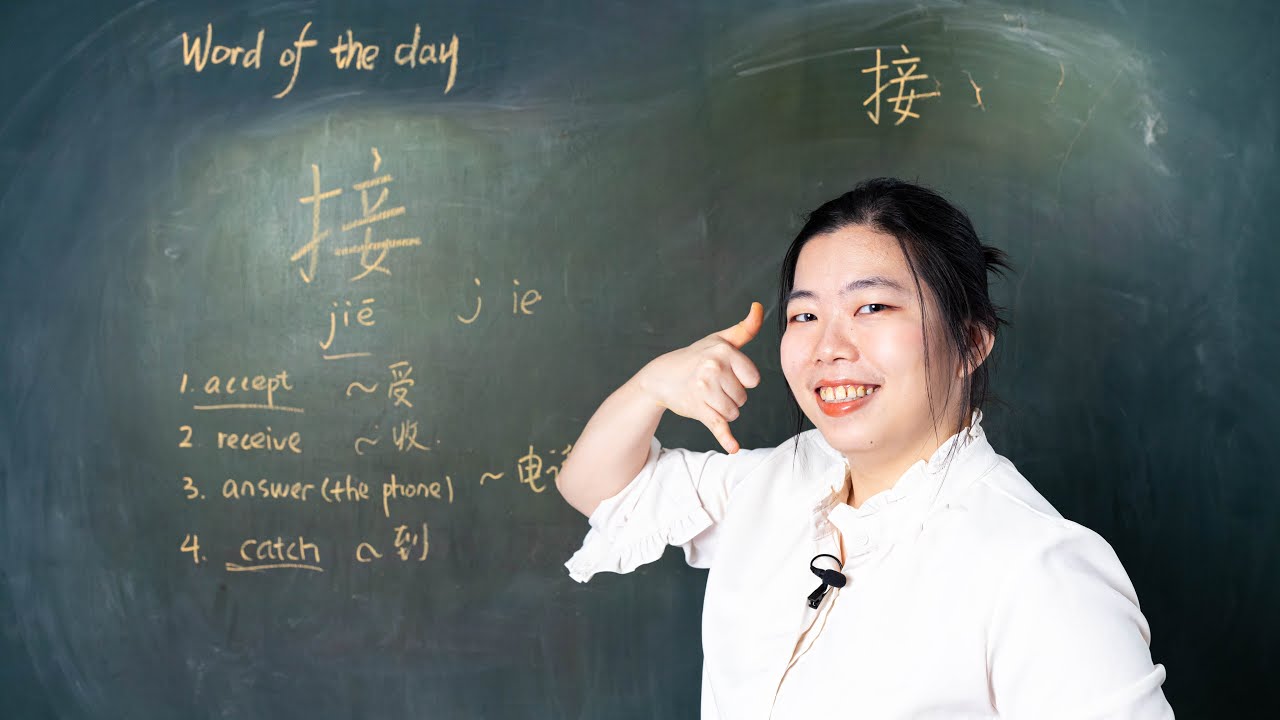 Word of the day
接
接
jiē
j ie
1. accept ~受
2. receive ~收.
3. answer (the phone) ~电
4. catch ~到